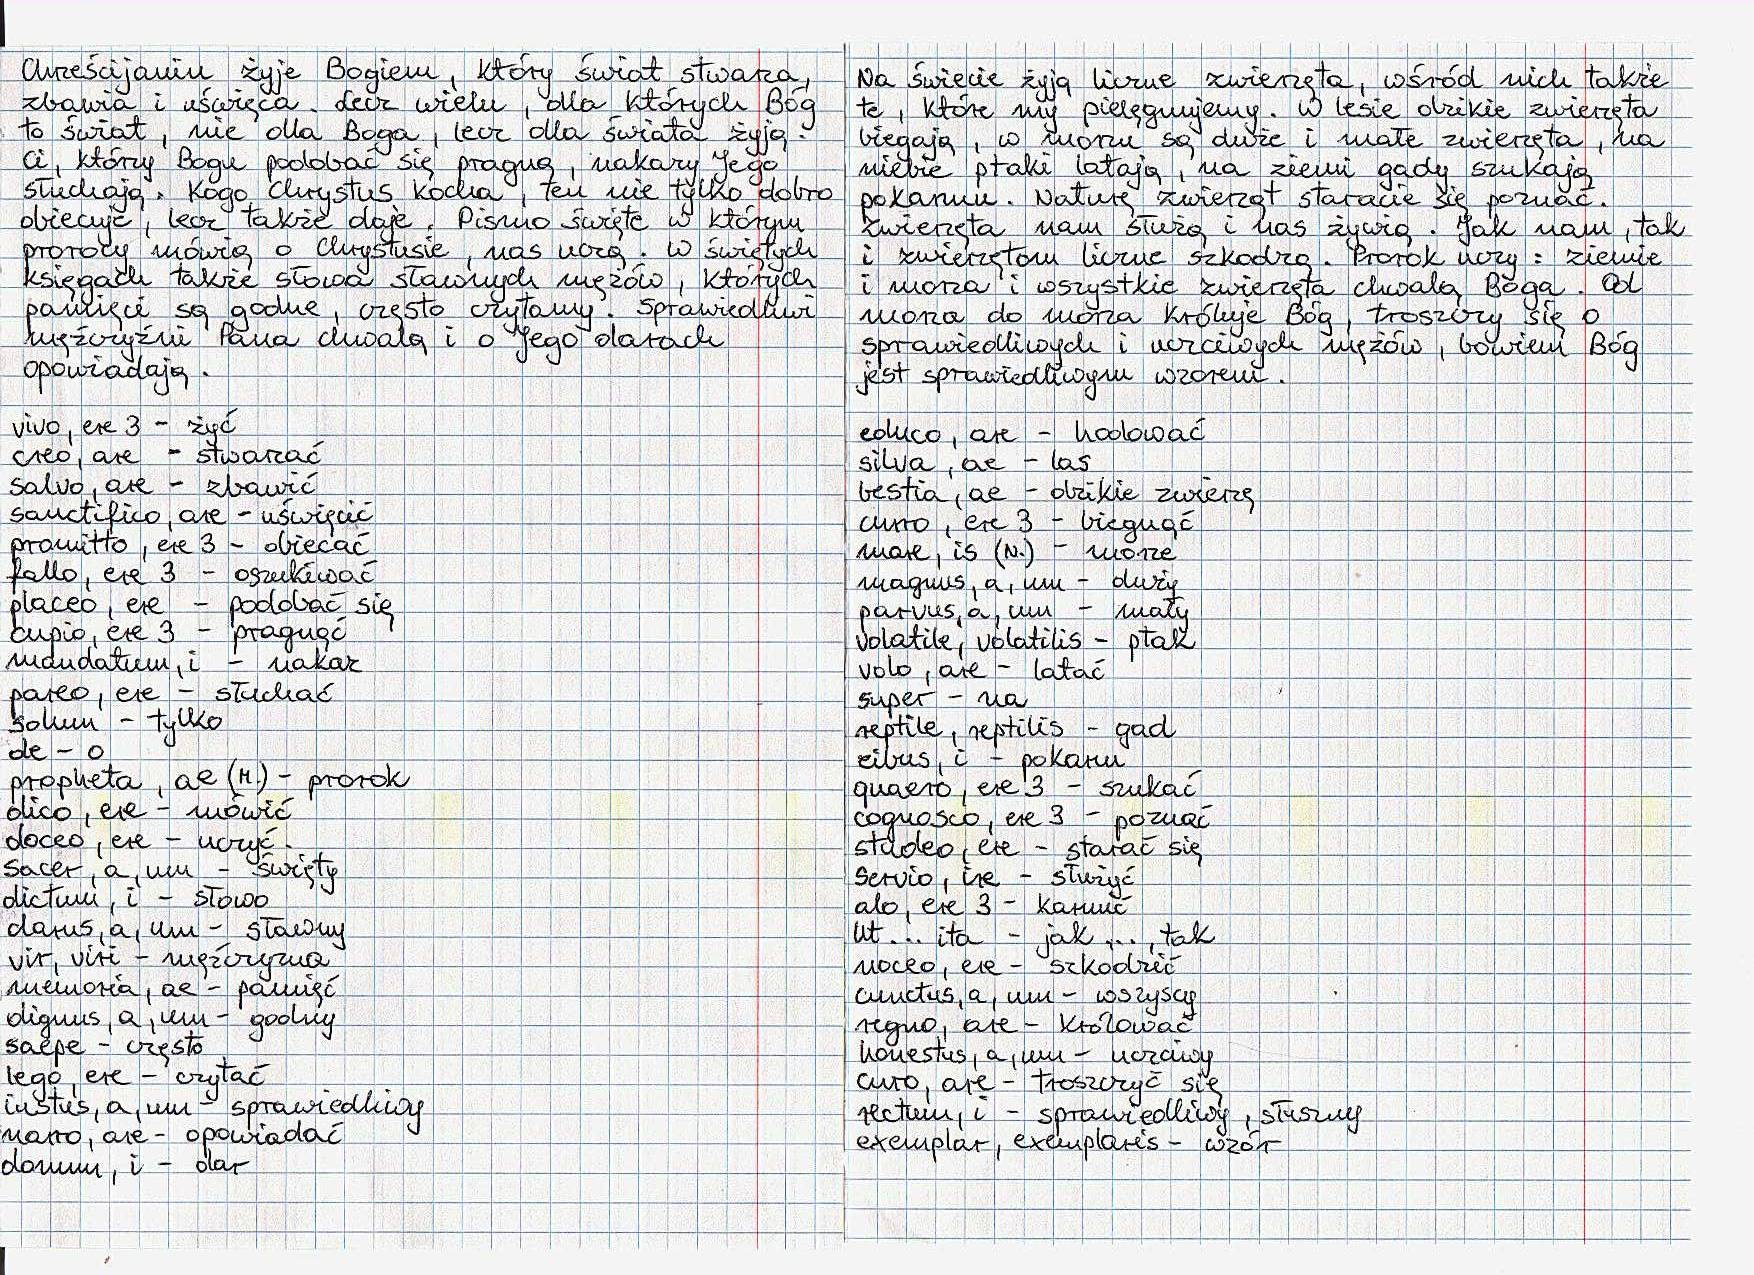 Chrześcijanin żyje Bogiem, który świat stwarza,
zbawia i uświęca. Lecz wielu, dla których Bóg
to świat, nie dla Boga, lecz dla świata żyją.
Ci, którzy Bogu podobać się pragną, nakazy Jego
słuchają. Kogo Chrystus kocha, ten nie tylko dobro
obiecuje, lecz także daje. Pismo święte w którym
prorocy mówią o Chrystusie, nas uczą. W świętych
księgach także słowa sławnych mężów, których
pamięci są godne, często czytamy. Sprawiedliwi
mężczyźni Pana chwalą i o Jego darach
opowiadają.
vivo, ere 3 - żyć
creo, are - stwarzać
salvo, are - zbawić
sanctifico, are - uświęcić
promitto, ere 3 - obiecać
fallo, ere 3 - oszukiwać
placeo, ere - podobać się
cupio, ere 3 - pragnąć
mandatum, i - nakaz
pareo, ere - słuchać
solum - tylko
de - o
propheta, ae (M.) - prorok
dico, ere - mówić
doceo, ere - uczyć.
sacer, a, um - święty
dictum, i - słowo
clarus, a, um - sławny
vir, viri - mężczyzna
memoria, ae - pamięć
dignus, a, um - godny
saepe - często
lego, ere - czytać
iustus, a, um - sprawiedliwy
narro, are - opowiadać
donum, i - dar
Na świecie żyją liczne zwierzęta, wśród nich także
te, które my pielęgnujemy. W lesie dzikie zwierzęta
biegają, w morzu są duże i małe zwierzęta, na
niebie ptaki latają, na ziemi gady szukają
pokarmu. Naturę zwierząt staracie się poznać.
Zwierzęta nam służą i nas żywią. Jak nam, tak
i zwierzętom liczne szkodzą. Prorok uczy: ziemie
i morza i wszystkie zwierzęta chwalą Boga. Od
morza do morza króluje Bóg, troszczy się o
sprawiedliwych i uczciwych mężów, bowiem Bóg
jest sprawiedliwym wzorem.
educo, are - hodować
silva, ae - las
bestia, ae - dzikie zwierzę
curro, ere 3 - biegnąć
mare, is (N.) - morze
magnus, a, um - duży
parvus, a, um - mały
volatile, volatilis - ptak
volo, are - latać
super - na
reptile, reptilis - gad
cibus, i - pokarm
quaero, ere 3 - szukać
cognosco, ere 3 - poznać
studeo, ere - starać się
servio, ire - służyć
alo, ere 3 - karmić
ut... ita - jak ..., tak
noceo, ere - szkodzić
cunctus, a, um - wszyscy
regno, are - królować
honestus, a, um - uczciwy
curo, are - troszczyć się
rectum, i - sprawiedliwy, słuszny
exemplar, exemplaris - wzór